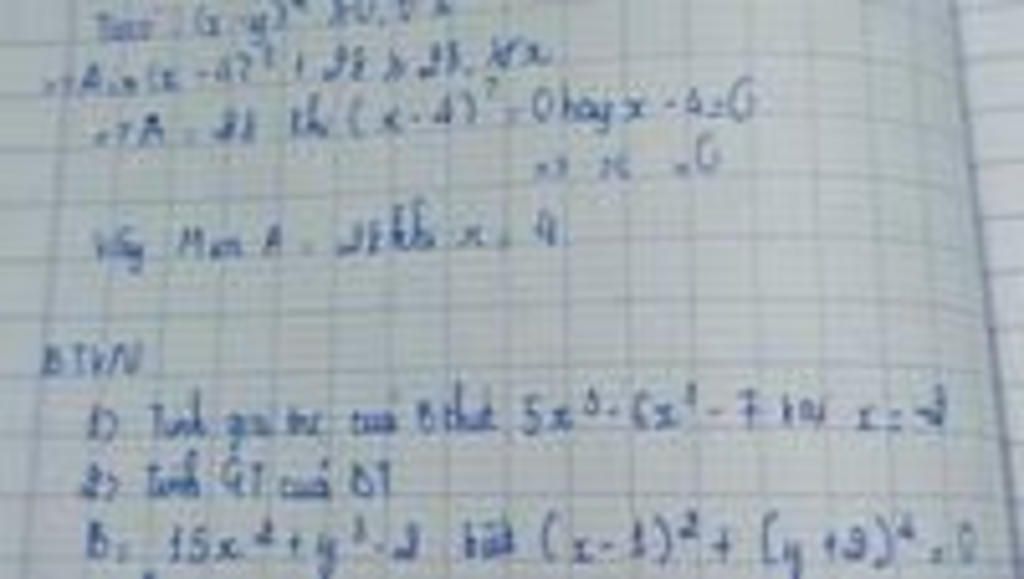 => A = (x - 4)² + 28 ≥ 28, ∀x
=> A = 28 khi (x - 4)² = 0 hay x - 4 = 0
=> x = 0
Vậy Min A = 28 khi x = 4
BTVN
1) Tính giá trị của Bthức 5x³ - 6x² - 7 tại x = -2
2) Tính GT của BT
B = 15x² + y³ - 2 biết (x - 1)² + (y + 2)² = 0